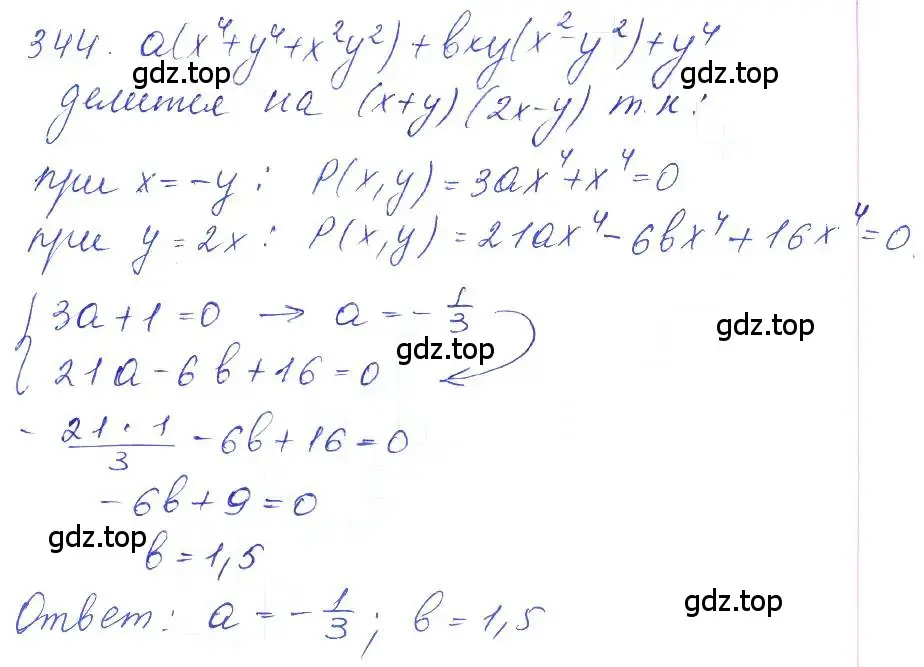 344. a(x⁴+y⁴+x²y²)+bxy(x²-y²)+y⁴
gdz.top gdz.top
делится на (x+y)(2x-y) т.к:
при x=-y: P(x,y)=3ax⁴+x⁴=0
при y=2x: P(x,y)=21ax⁴-6bx⁴+16x⁴=0.
{ 3a+1=0 → a=-1/3
gdz.top gdz.top
21a-6b+16=0
-21·1/3-6b+16=0
-6b+9=0
gdz.top
b=1,5
Ответ: a=-1/3; b=1,5
gdz.top